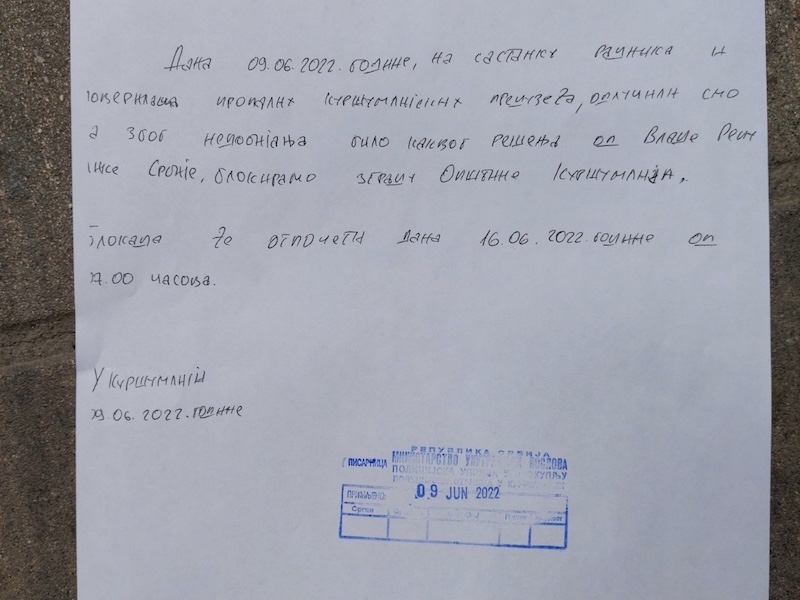 Дана 09.06.2022. године, на састанку радника и
поверилаца пропалих куршумлијских предузећа, одлучили смо
да због недобијања било каквог решења од Владе Репу
блике Србије, блокирамо зграду Општине Куршумлија.
Блокада ће отпочети дана 16.06.2022. године од
7.00 часова.
У Куршумлији
09.06.2022. године
РЕПУБЛИКА СРБИЈА
ПИСАРНИЦА МИНИСТАРСТВО УНУТРАШЊИХ ПОСЛОВА
ПОЛИЦИЈСКА УПРАВА У ПРОКУПЉУ
ПРИМЉЕНО: 09 JUN 2022
Орган